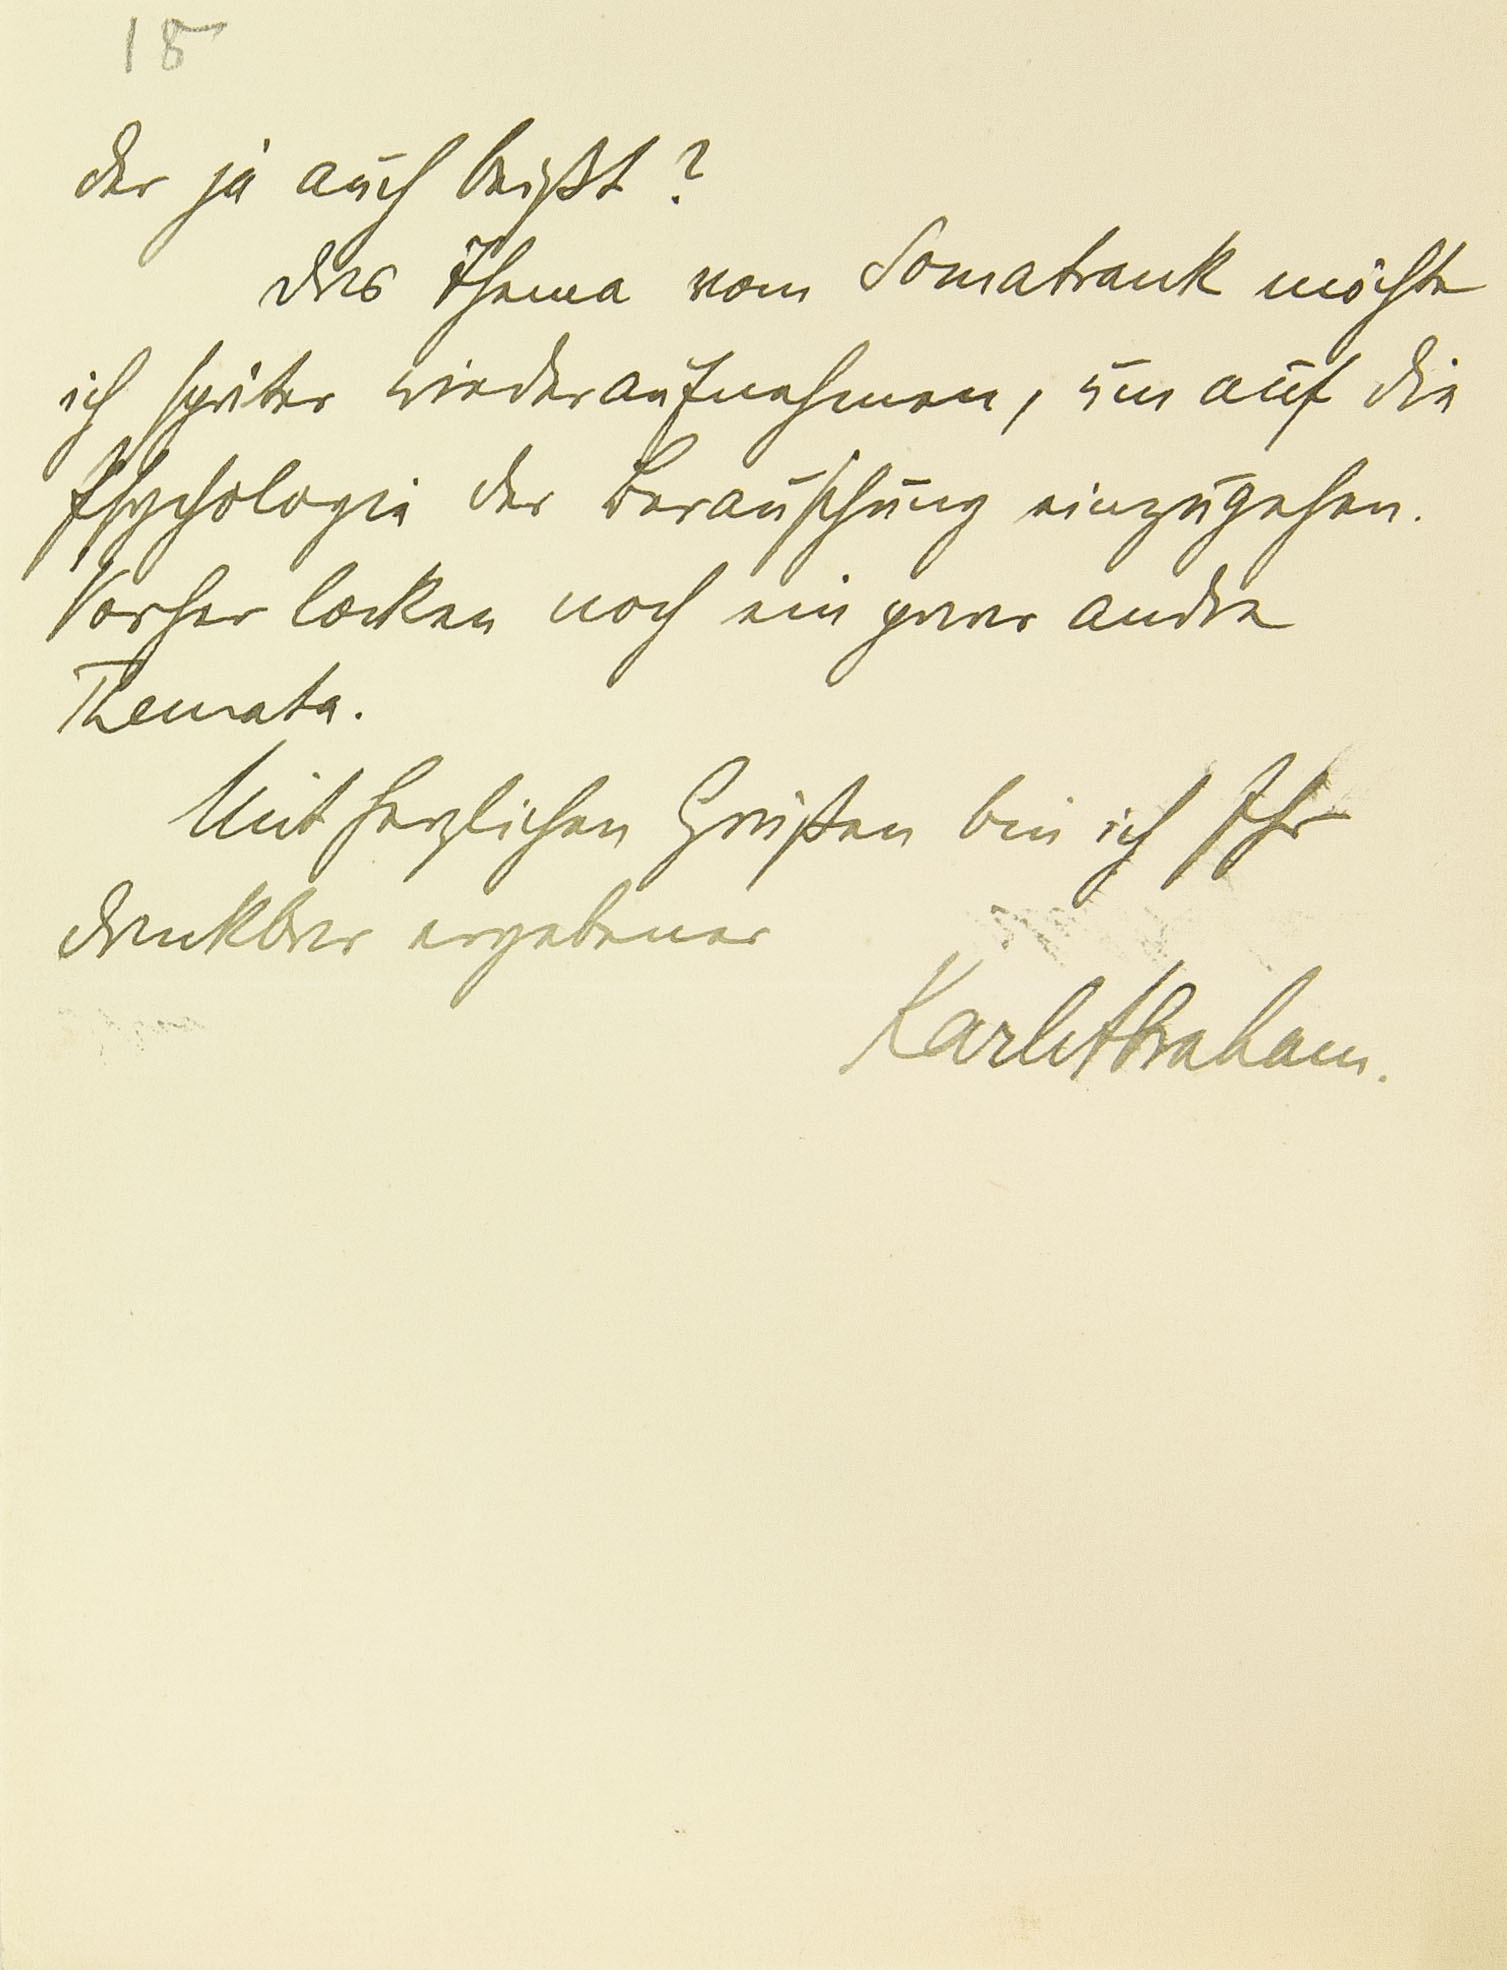 18
der ja auch beißt?
Das Thema vom Somatrank möchte
ich später wiederaufnehmen, um auf die
Psychologie der Berauschung einzugehen.
Vorher locken noch ein paar andre
Themata.
Mit herzlichen Grüßen bin ich Ihr
dankbar ergebener
Karl Abraham.